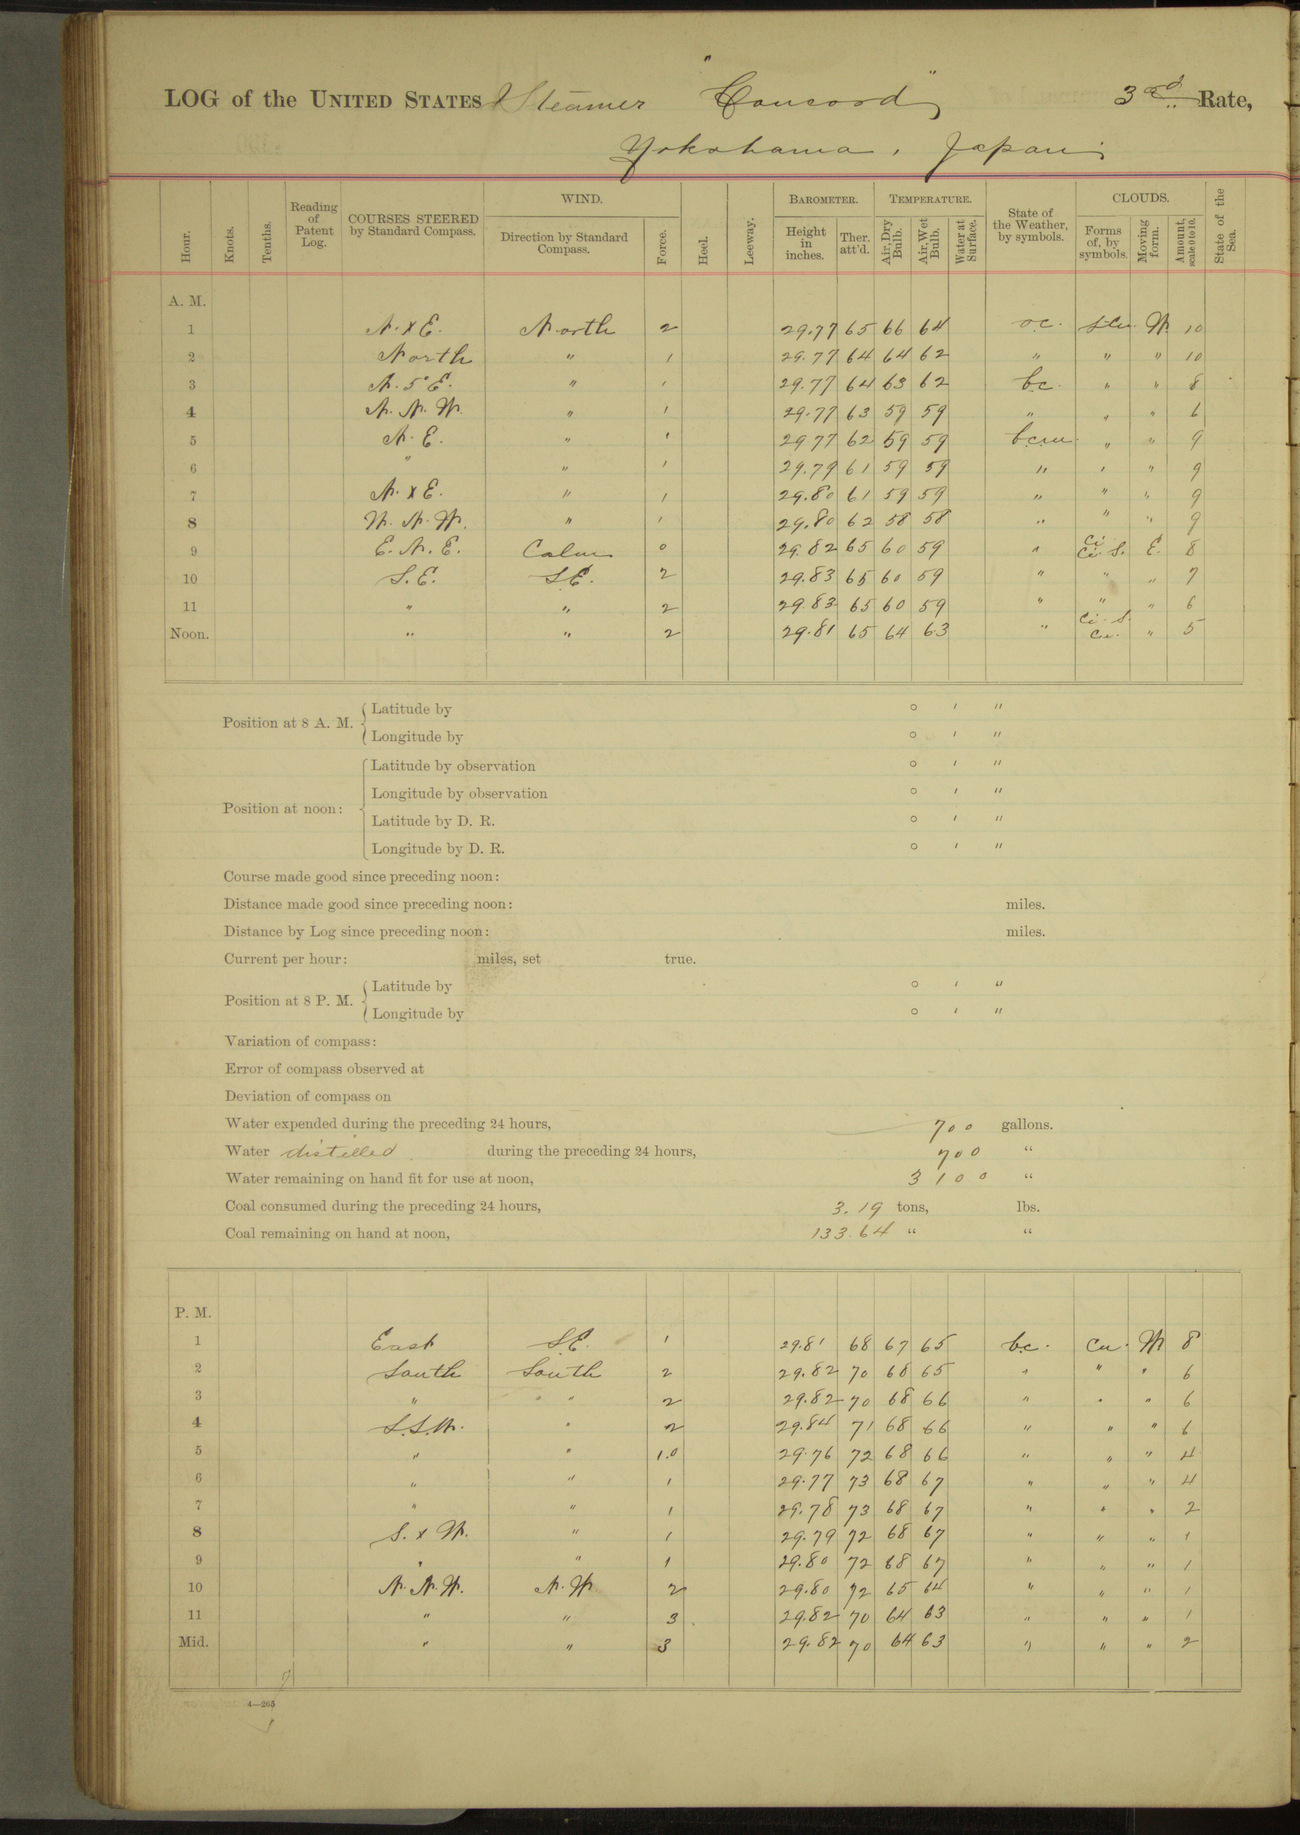 LOG of the UNITED STATES Steamer "Concord", 3rd Rate,
Yokohama, Japan
Hour. Knots. Tenths. Reading of Patent Log. COURSES STEERED by Standard Compass. WIND. Direction by Standard Compass. Force. Heel. Leeway. BAROMETER. Height in inches. Ther. att'd. TEMPERATURE. Air, Dry Bulb. Air, Wet Bulb. Water at Surface. State of the Weather, by symbols. CLOUDS. Forms of, by symbols. Moving form. Amount, scale 0 to 10. State of the Sea.
A. M.
1 N. x E. North 2 29.77 65 66 64 oc. S cu. W. 10
2 North " 1 29.77 64 64 62 " " " 10
3 N. 5° E. " 1 29.77 64 63 62 bc. " " 8
4 N. N. W. " 1 29.77 63 59 59 " " " 6
5 N. E. " 1 29.77 62 59 59 bcm " " 9
6 " " 1 29.79 61 59 59 " " " 9
7 N. x E. " 1 29.80 61 59 59 " " " 9
8 W. N. W. " 1 29.80 62 58 58 " " " 9
9 E. N. E. Calm 0 29.82 65 60 59 " Ci Ci. S. E. 8
10 S. E. S.E. 2 29.83 65 60 59 " " " 7
11 " " 2 29.83 65 60 59 " " " 6
Noon. " " 2 29.81 65 64 63 " Ci. S. Cu. " 5
Position at 8 A. M. Latitude by ° ′ ″
Longitude by ° ′ ″
Position at noon: Latitude by observation ° ′ ″
Longitude by observation ° ′ ″
Latitude by D. R. ° ′ ″
Longitude by D. R. ° ′ ″
Course made good since preceding noon:
Distance made good since preceding noon: miles.
Distance by Log since preceding noon: miles.
Current per hour: miles, set true.
Position at 8 P. M. Latitude by ° ′ ″
Longitude by ° ′ ″
Variation of compass:
Error of compass observed at
Deviation of compass on
Water expended during the preceding 24 hours, 700 gallons.
Water distilled during the preceding 24 hours, 700 "
Water remaining on hand fit for use at noon, 3100 "
Coal consumed during the preceding 24 hours, 3.19 tons, lbs.
Coal remaining on hand at noon, 133.64 " "
P. M.
1 East S.E. 1 29.81 68 67 65 bc. Cu. W 8
2 South South 2 29.82 70 68 65 " " " 6
3 " " 2 29.82 70 68 66 " " " 6
4 S.S.W. " 2 29.84 71 68 66 " " " 6
5 " " 1.0 29.76 72 68 66 " " " 4
6 " " 1 29.77 73 68 67 " " " 4
7 " " 1 29.78 73 68 67 " " " 2
8 S. x W. " 1 29.79 72 68 67 " " " 1
9 " " 1 29.80 72 68 67 " " " 1
10 N. N. W. N. W 2 29.80 72 65 64 " " " 1
11 " " 3 29.82 70 64 63 " " " 1
Mid. " " 3 29.82 70 64 63 " " " 2
4—265